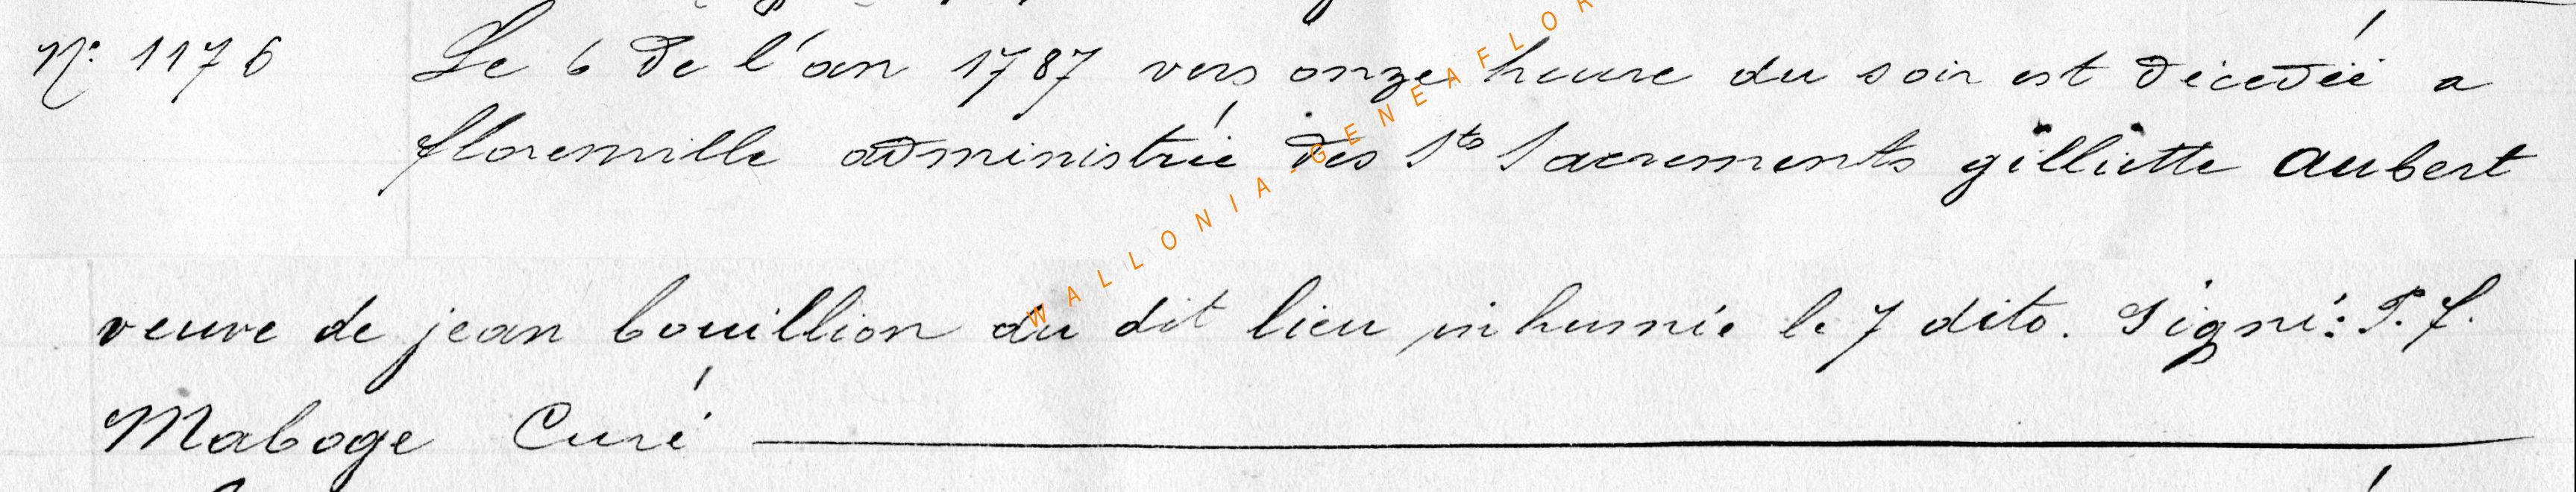 N° 1176 Le 6 de l'an 1787 vers onze heure du soir est décédée a
florenville administrée des Sts Sacrements gilliette aubert
veuve de jean bouillion du dit lieu inhumée le 7 dito. Signé: P. f.
Maboge Curé
WALLONIA-GENEAFLOR